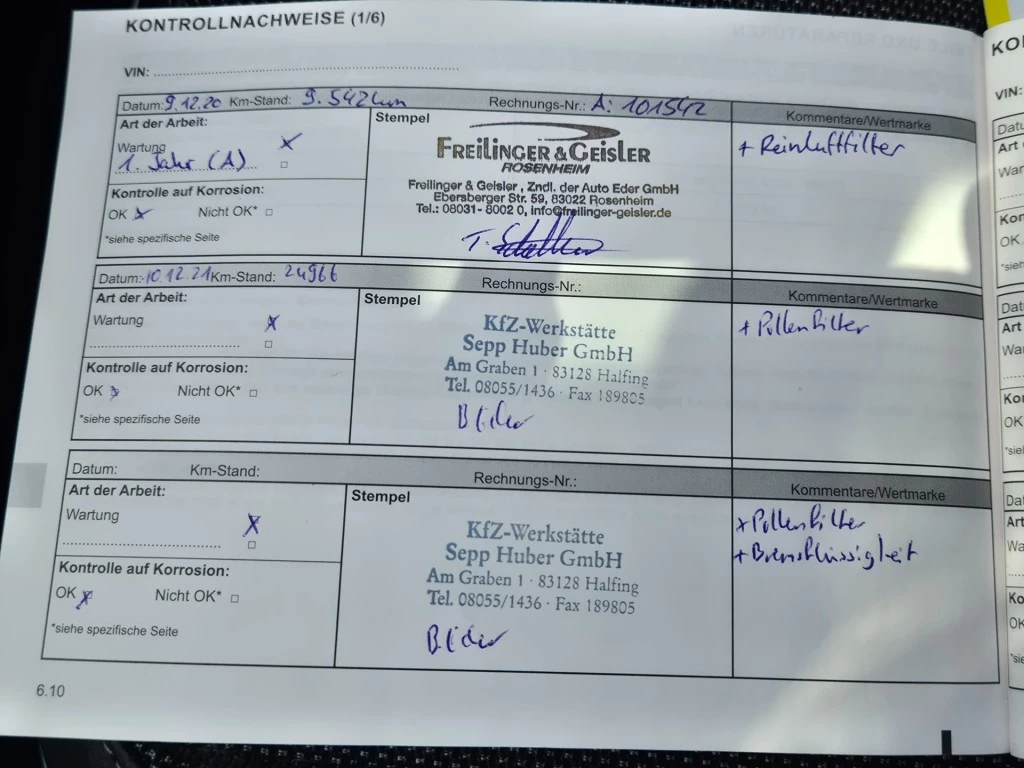 KONTROLLNACHWEISE (1/6)
VIN:
Datum: 9.12.20 Km-Stand: 9.542km Rechnungs-Nr.: A: 101542
Kommentare/Wertmarke
Art der Arbeit:
Wartung
1. Jahr (A)
Kontrolle auf Korrosion:
OK Nicht OK*
*siehe spezifische Seite
Stempel
FREILINGER & GEISLER
ROSENHEIM
Freilinger & Geisler, Zndl. der Auto Eder GmbH
Ebersberger Str. 59, 83022 Rosenheim
Tel.: 08031- 8002 0, info@freilinger-geisler.de
+ Reinluftfilter
Datum: 10.12.21 Km-Stand: 24966 Rechnungs-Nr.:
Kommentare/Wertmarke
Art der Arbeit:
Wartung
Kontrolle auf Korrosion:
OK Nicht OK*
*siehe spezifische Seite
Stempel
KfZ-Werkstätte
Sepp Huber GmbH
Am Graben 1 · 83128 Halfing
Tel. 08055/1436 · Fax 189805
+ Pollenfilter
Datum: Km-Stand: Rechnungs-Nr.:
Kommentare/Wertmarke
Art der Arbeit:
Wartung
Kontrolle auf Korrosion:
OK Nicht OK*
*siehe spezifische Seite
Stempel
KfZ-Werkstätte
Sepp Huber GmbH
Am Graben 1 · 83128 Halfing
Tel. 08055/1436 · Fax 189805
+ Pollenfilter
+ Bremsflüssigkeit
6.10
VIN:
Art
OK
Art
OK
Art
OK